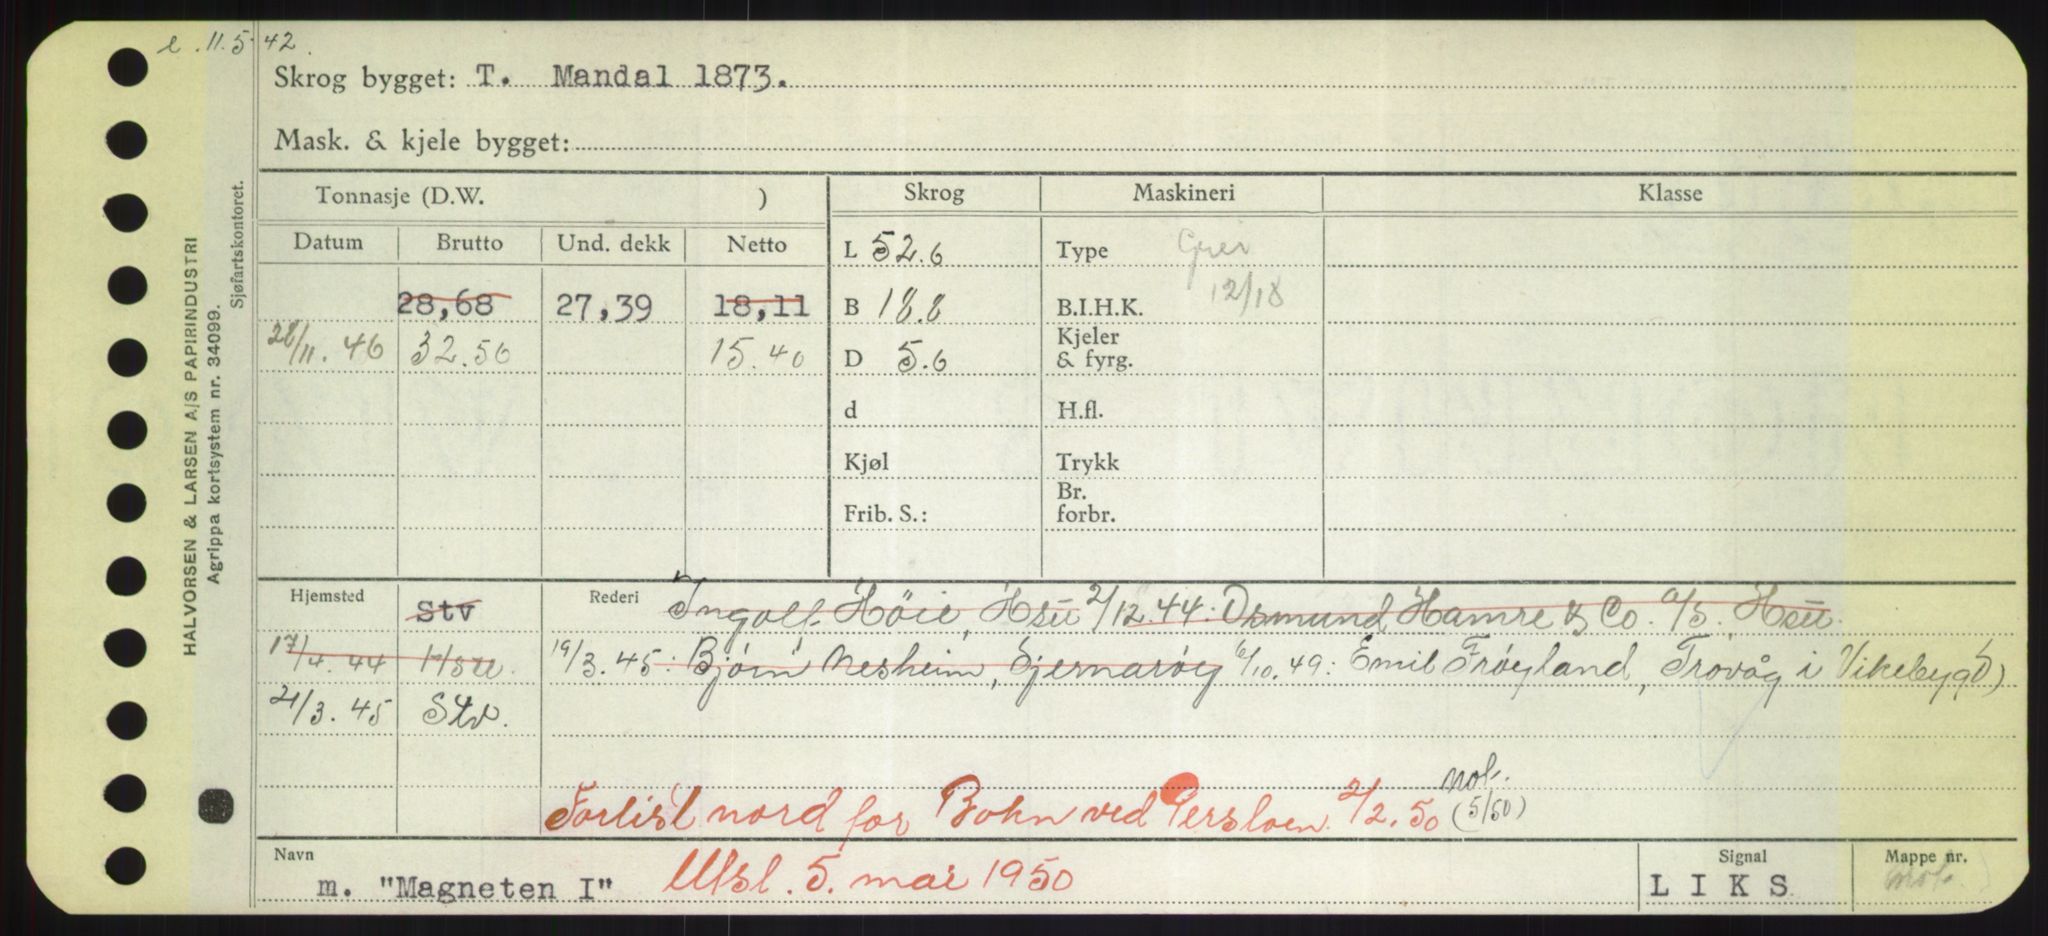 e. 11.5.42.
Skrog bygget: T. Mandal 1873.
Mask. & kjele bygget:
HALVORSEN & LARSEN A/S PAPIRINDUSTRI
Agrippa kortsystem nr. 34099.
Sjøfartskontoret.
Tonnasje (D.W. )
Datum Brutto Und. dekk Netto
28,68 27,39 18,11
28/11.46 32.50 15.40
Skrog Maskineri Klasse
L 52.6 Type
B 18.8 B.I.H.K. 12/18
D 5.6 Kjeler & fyrg.
d H.fl.
Kjøl Trykk
Frib. S.: Br. forbr.
Hjemsted Stv Rederi Ingolf Høie, 2/12.44: Osmund Hamre & Co. A/S.
17/4.44 19/3.45: Bjørn Nesheim, Sjernarøy 6/10.49: Emil Frøyland, Trovåg i Vikebygd
21/3.45 Stv.
Forlist nord for Bokn ved 2/2.50 not. (5/50)
Navn m. "Magneten I" Utsl. 5. mai 1950
Signal LIKS
Mappe nr. mot.